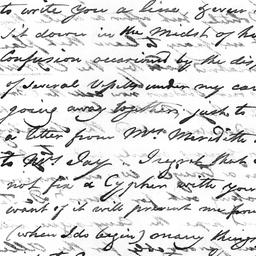 to write you a line, Even
sit down in the midst of
confusion occasioned by the dis
of several Vessels under my car
going away together, just to
a letter from Mrs Meredith
to Mrs Jay. I regret that
not fix a Cypher with you
want of it will prevent me from
(when I do begin) many things